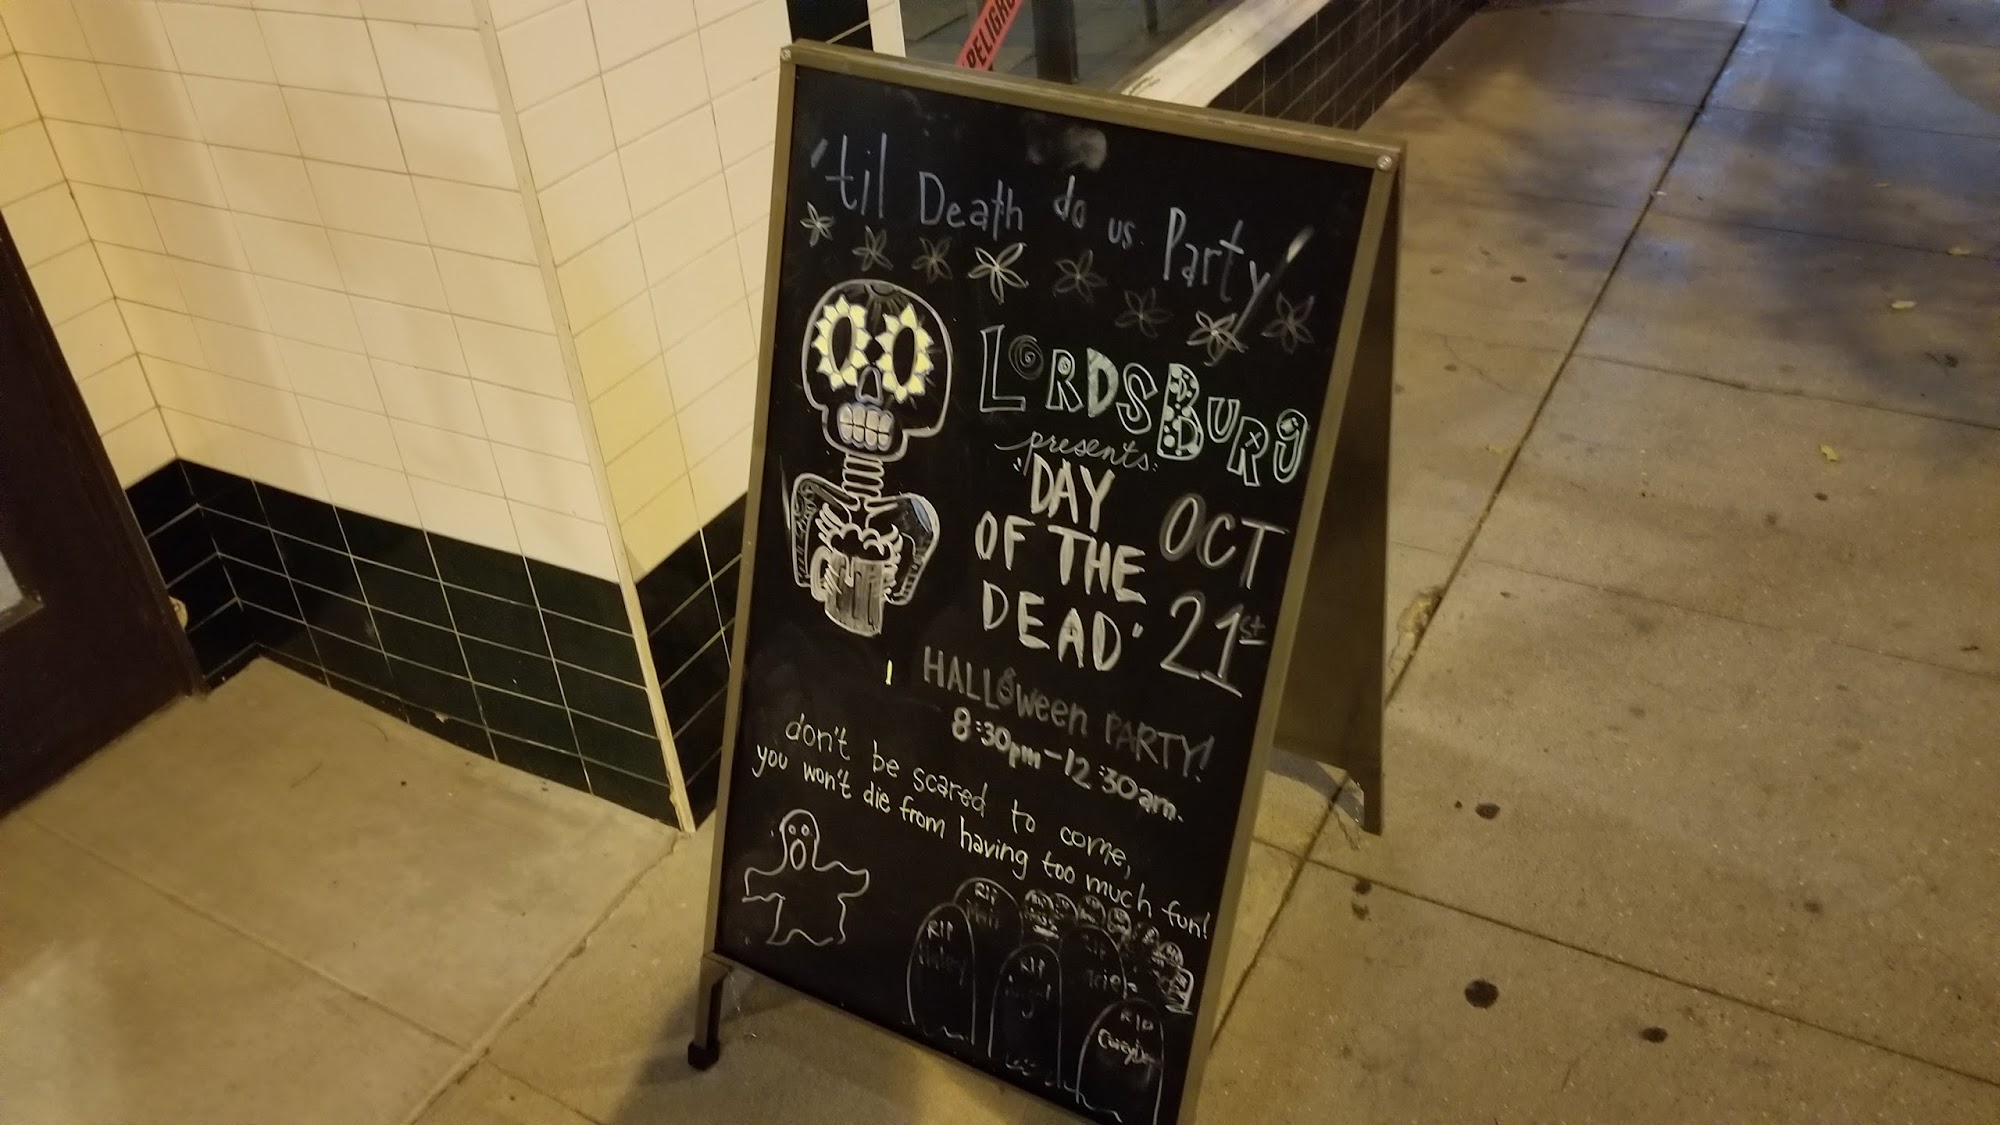 PELIGRO
'til Death do us Party!
LORDSBURG
presents:
"DAY
OF THE
DEAD"
OCT
21st
HALLOween PARTY!
8:30pm-12:30am.
don't be scared to come,
you won't die from having too much fun!
RIP
RIP
RIP
RIP